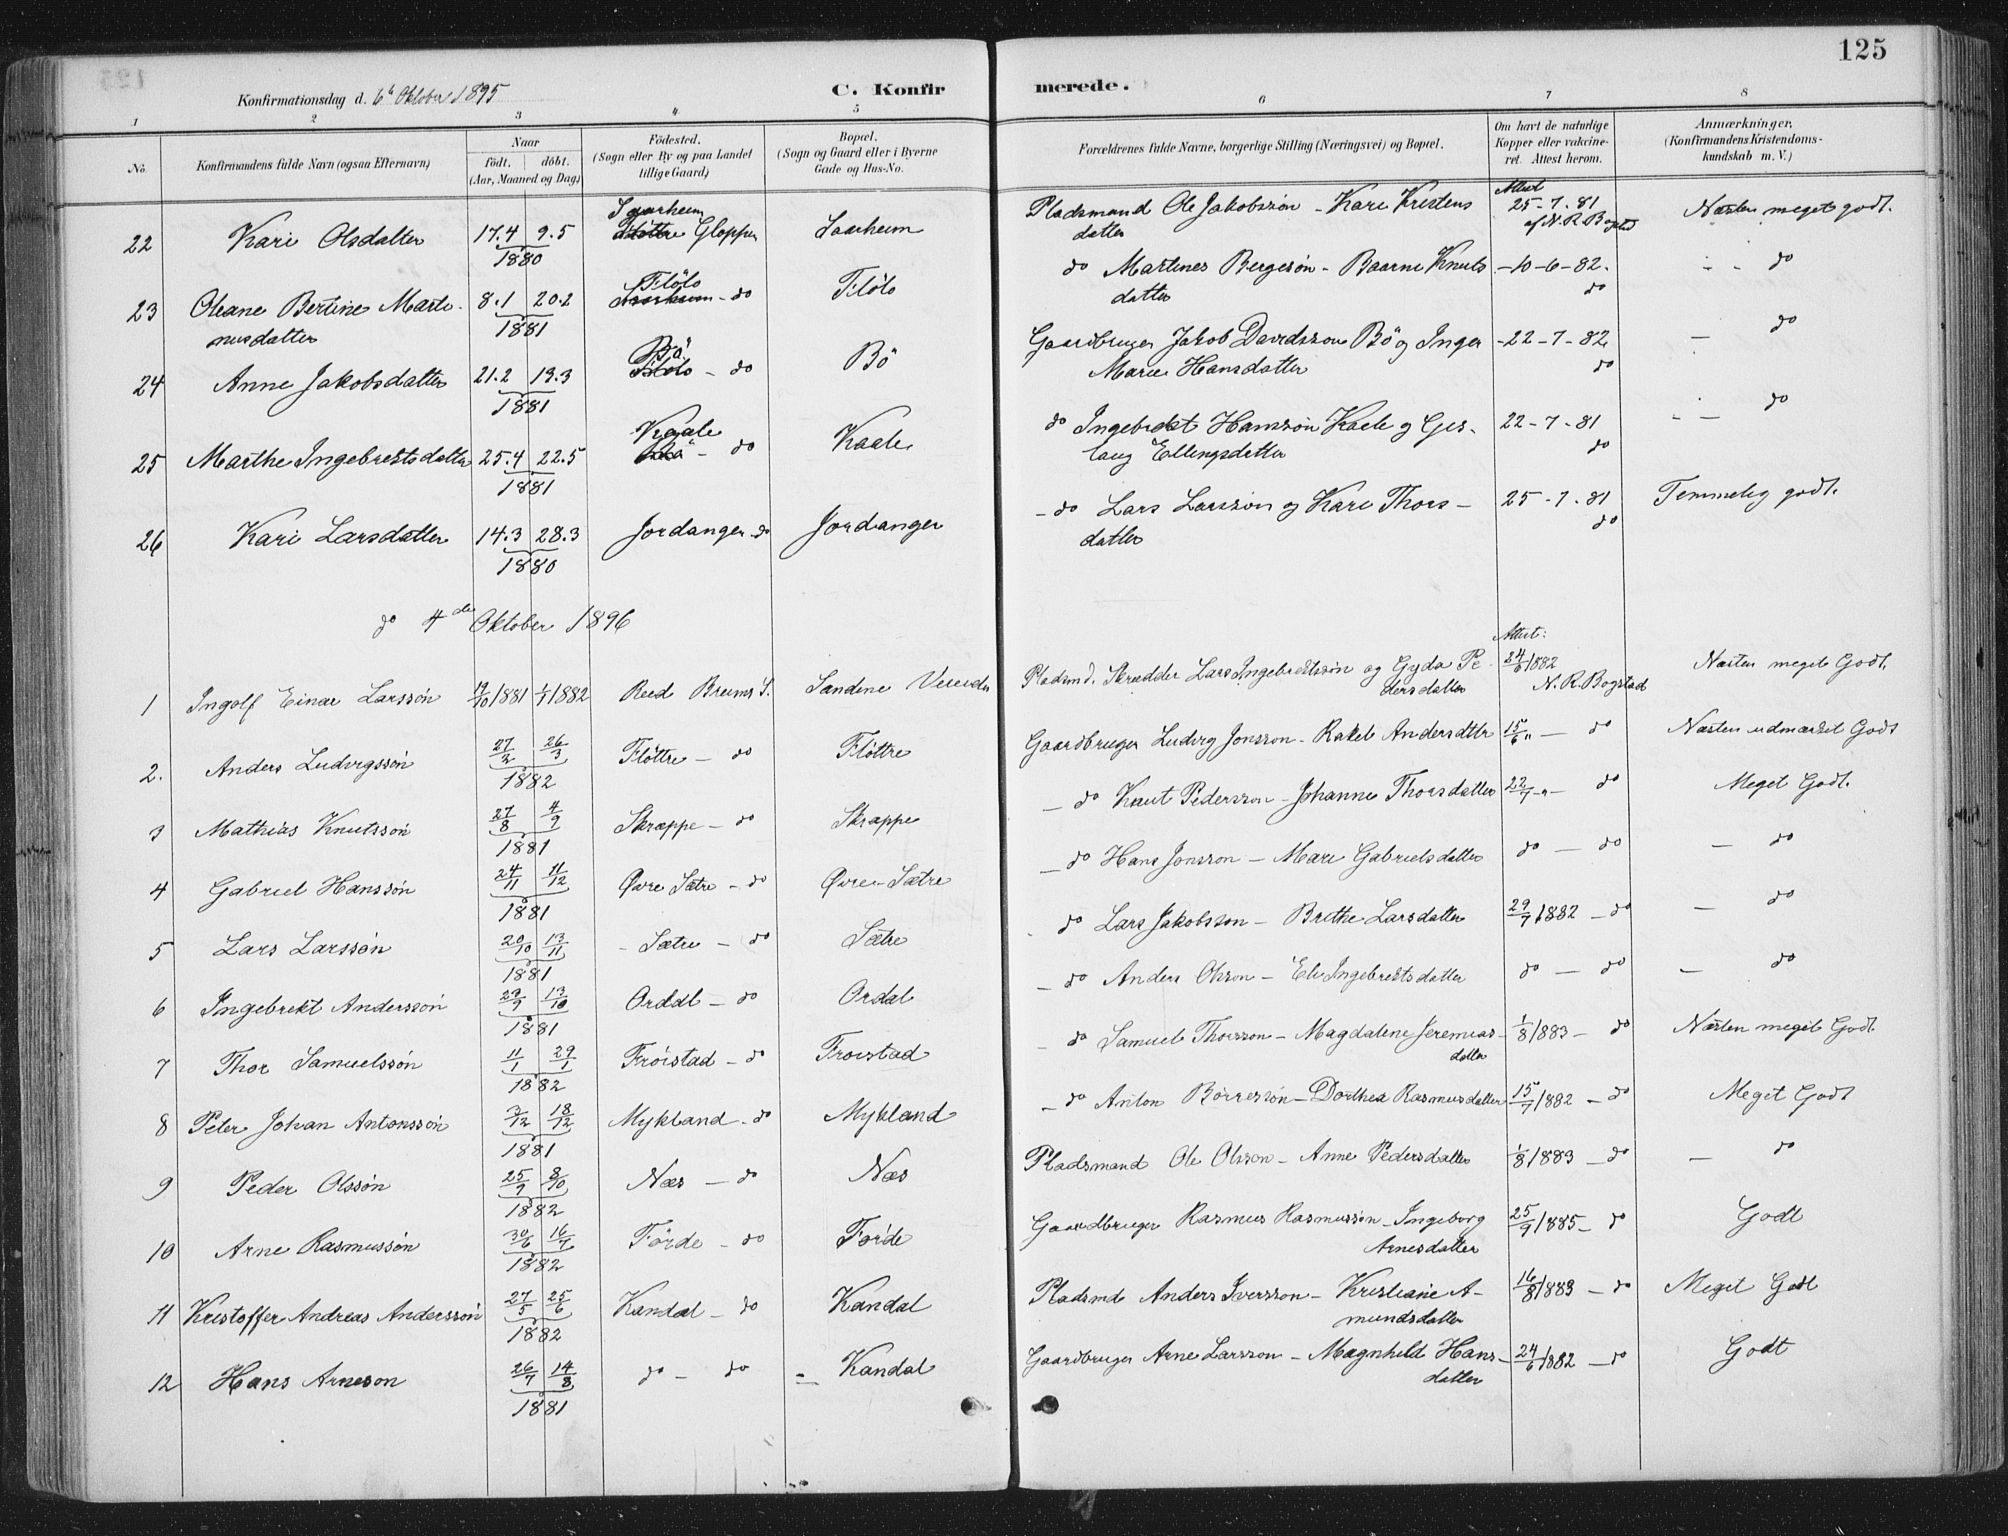 125
Konfirmationsdag d. 6te Oktober 1895 C. Konfirmerede.
1 2 3 4 5 6 7 8
No. Konfirmandens fulde Navn (ogsaa Efternavn) Naar födt. döbt. (Aar, Maaned og Dag) Födested. (Sogn eller By og paa Landet tillige Gaard) Bopæl. (Sogn og Gaard eller i Byerne Gade og Hus-No. Forældrenes fulde Navne, borgerlige Stilling (Næringsvei) og Bopæl. Om havt de naturlige Kopper eller vakcineret. Attest herom. Anmærkninger. (Konfirmandens Kristendomskundskab m. V.)
22 Kari Olsdatter 17.4 9.5 1880 Saarheim Gloppen Saarheim Pladsmand Ole Jakobssön - Kari Kristensdatter Attest 25-7-81 af N. R. Bogstad Næsten meget godt.
23 Oleane Bertine Martinusdatter 8.1 20.2 1881 Flölo - do Flölo do Martines Bergesön - Baarne Knutsdatter -10-6-82. do - - do
24 Anne Jakobsdatter 21.2 13.3 1881 Bö - do Bö Gaardbruger Jakob Davidsson Bö og Inger Marie Hansdatter -22-7-82 do - do
25 Marthe Ingebrektsdatter 25.4 22.5 1881 Kaale - do Kaale do Ingebrekt Hanssön Kaale og Gjeslaug Ellingsdatter 22-7-81 do - - do
26 Kari Larsdatter 14.3 28.3 1880 Jordanger - do Jordanger - do Lars Larssön og Kari Thorsdatter 25-7-81 do Temmelig godt.
do 4de Oktober 1896
1 Ingolf Einar Larssön 12/10 1881 1/1 1882 Reed Breims S. Sandene Pladsmd. Skrædder Lars Ingebrektssön og Gyda Pedersdatter Attest: 24/6 1882 N. R. Bogstad Næsten meget Godt.
2. Anders Ludvigssön 27/2 26/3 1882 Flöttre - do Flöttre Gaardbruger Ludvig Jonsson - Rakel Andersdttr 15/6 " - do Næsten udmærket Godt
3 Mathias Knutssön 27/8 4/9 1881 Skrappe - do Skrappe - do Knut Pedersson - Johanne Thorsdatter 22/7 - " - do Meget Godt.
4 Gabriel Hanssön 24/11 11/12 1881 Øvre Sætre - do Øvre Sætre - do Hans Jonsson - Mari Gabrielsdatter do - do - do
5 Lars Larssön 20/10 13/11 1881 - Sætre - do Sætre do Lars Jakobsson - Brithe Larsdatter 29/7 1882 - do - do
6 Ingebrekt Anderssön 29/9 13/10 1881 Ordal - do Ordal - do Anders Olsson - Eli Ingebrektsdatter do - do - do
7 Thor Samuelssön 11/1 29/1 1882 Fröistad - do Froistad - do Samuel Thorsson - Magdalene Jeremiasdatter 1/8 1883 - do Næsten meget Godt
8 Peter Johan Antonssön 2/12 18/12 1881 Mykland - do Mykland - do Anton Börresön - Dorthea Rasmusdatter 15/7 1882 - do Meget Godt
9 Peder Olssön 25/9 8/10 1882 Næs - do Næs Pladsmand Ole Olsson - Anne Pedersdatter 1/8 1883 - do - do
10 Arne Rasmussön 30/6 16/7 1882 Förde - do Förde Gaardbruger Rasmus Rasmussön - Ingeborg Arnesdatter 25/9 1885 - do Godt
11 Kristoffer Andreas Anderssön 27/5 25/6 1882 Kandal - do Kandal Pladsmd Anders Iversson - Kristiane Amundsdatter 16/8 1883 - do Meget Godt
12 Hans Arneson 26/7 14/8 1881 do - do - Kandal Gaardbruger Arne Larsson - Magnhild Hansdatter 24/6 1882 - do Godt